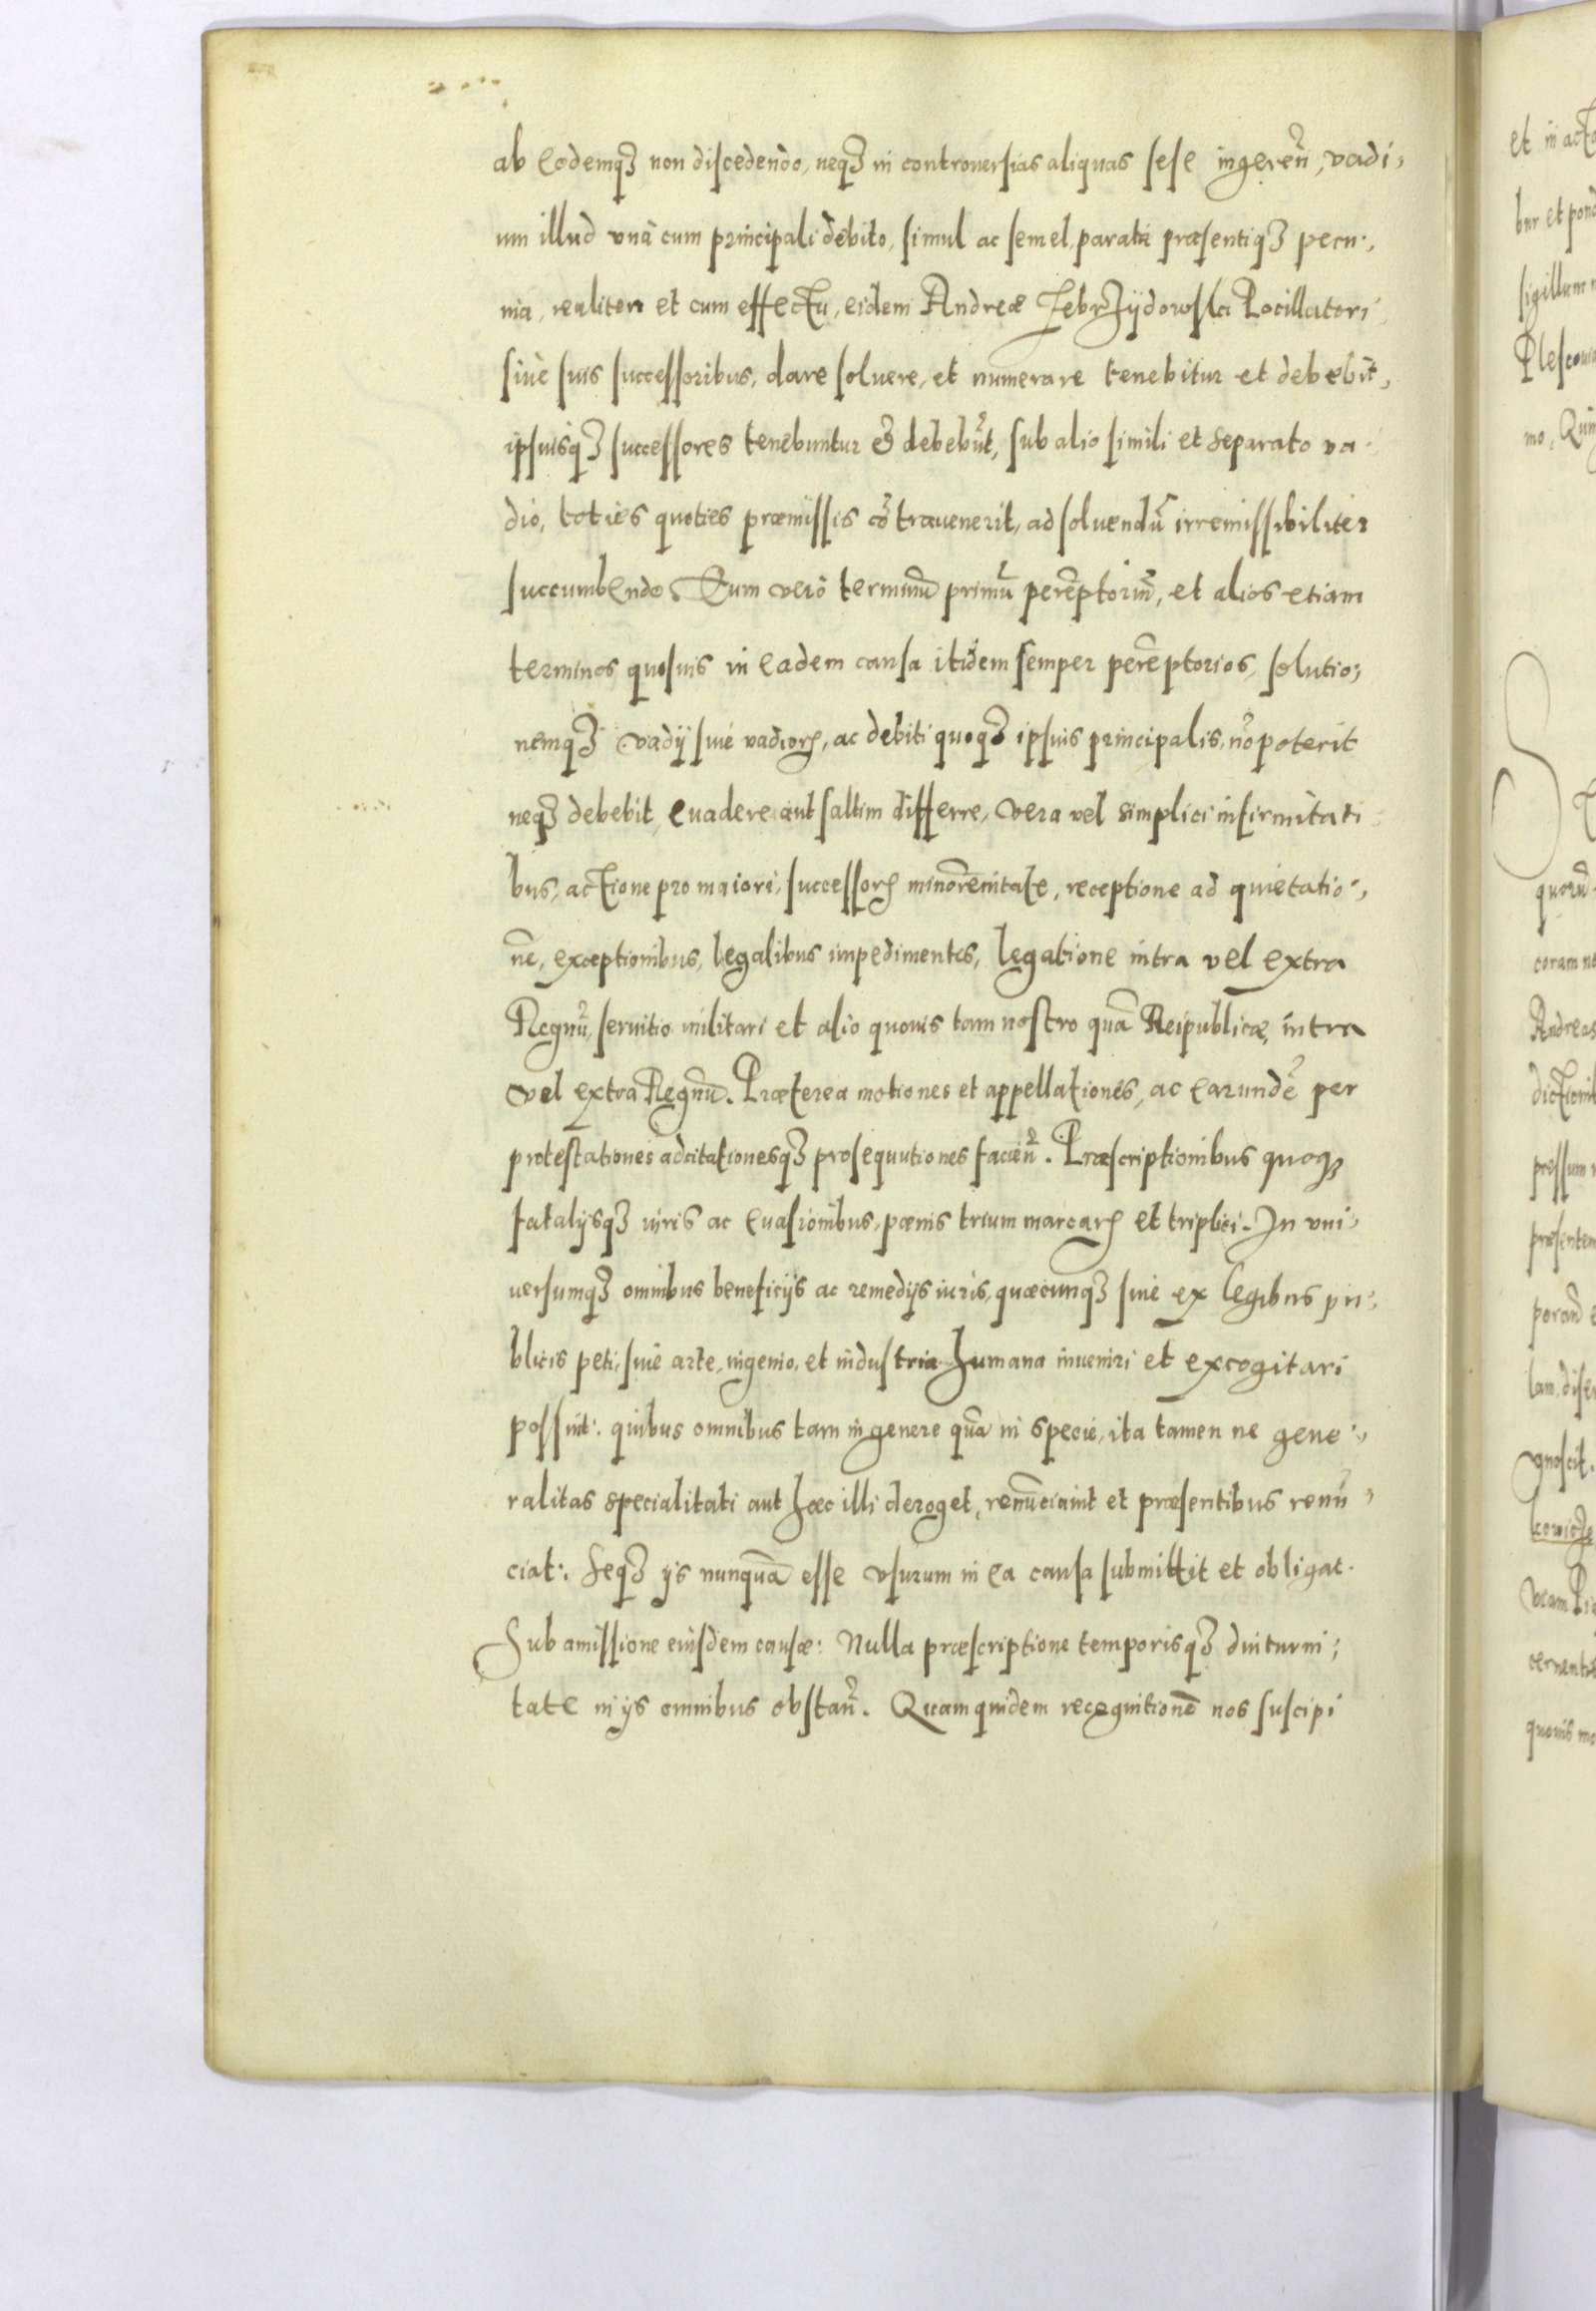 ab eodemq3 non discedendo, neq3 in controuersias aliquas sese ingereñ, vadi,
um illud vnà cum principali debito, simul ac semel, parata præsentiq3 pecu:,
nia, realiter et cum effectu, eidem Andreæ Zebrzijdowski Pocillatori
siue suis successoribus, dare soluere, et numerare tenebitur et debebit,
ipsiusq3 successores tenebuntur & debebũt, sub alio simili et separato va
dio, toties quoties præmissis cõtrauenerit, ad soluendũ irremissibiliter
succumbendo. Eum verò terminũ primũ perẽptoriũ, et alios etiam
terminos quosuis in eadem causa itidem semper perẽptorios, solutio,
nemq3 vadij siue vadiorꝝ, ac debiti quoq3 ipsius principalis, nõ poterit
neq3 debebit, euadere aut saltim differre, vera vel simplici infirmitati
bus, actione pro maiori, successorꝝ minorẽnitate, receptione ad quietatio:,
nẽ, exceptionibus, legalibus impedimentis, legatione intra vel extra
Regnũ, seruitio militari et alio quouis tam nostro quã Reipublicæ, intra
vel extra Regnũ. Præterea motiones et appellationes, ac earundẽ per
protestationes adcitationesq3 prosequutiones facieñ. Præscriptionibus quoq3
fatalijsq3 iuris ac euasionibus, pœnis trium marcarꝝ et triplici. In vni,
uersumq3 omnibus beneficijs ac remedijs iuris, quæcunq3 siue ex legibus pu:,
blicis peti, siue arte, ingenio, et industria humana inueniri et excogitari
possint: quibus omnibus tam in genere quã in specie, ita tamen ne gene:,
ralitas specialitati aut hæc illi deroget, renũciauit et præsentibus renũ,
ciat: Seq3 ijs nunquã esse vsurum in ea causa submittit et obligat.
Sub amissione eiusdem causæ: Nulla præscriptione temporisq3 diuturni;
tate in ijs omnibus obstañ. Quam quidem recognitionẽ nos suscipi
et in
bur et
sigillum
mo,
quorũ
coram
Andreas